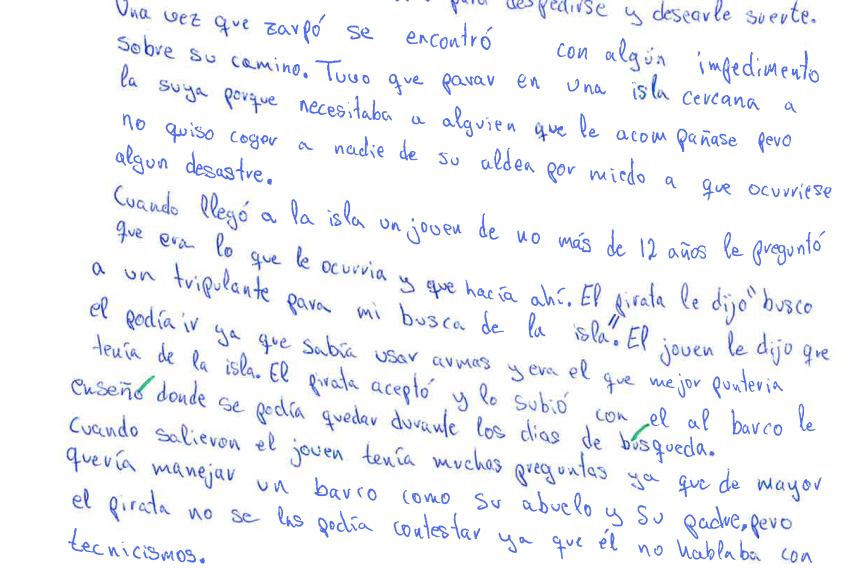 para despedirse y desearle suerte.
Una vez que zarpó se encontró con algún impedimento
sobre su camino. Tuvo que parar en una isla cercana a
la suya porque necesitaba a alguien que le acompañase pero
no quiso coger a nadie de su aldea por miedo a que ocurriese
algun desastre.
Cuando llegó a la isla un joven de no más de 12 años le preguntó
que era lo que le ocurria y que hacía ahí. El pirata le dijo "busco
a un tripulante para mi busca de la isla". El joven le dijo que
el podía ir ya que sabía usar armas y era el que mejor punteria
tenía de la isla. El pirata aceptó y lo subió con el al barco le
enseñó donde se podía quedar durante los dias de búsqueda.
Cuando salieron el joven tenía muchas preguntas ya que de mayor
quería manejar un barco como su abuelo y su padre, pero
el pirata no se las podía contestar ya que él no hablaba con
tecnicismos.